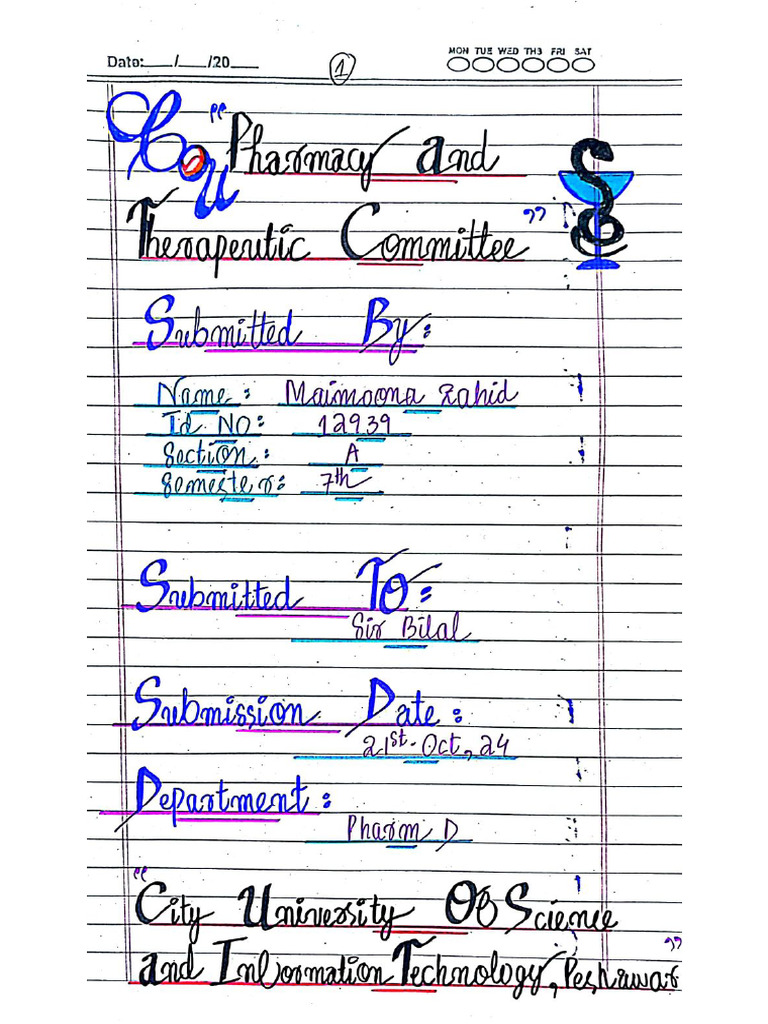 Date:___/___/20___
1
MON TUE WED THS FRI SAT
"Pharmacy and
Therapeutic Committee"
Submitted By:
Name: Maimoona Zahid
Id NO: 12939
Section: A
Semester: 7th
Submitted To:
Sir Bilal
Submission Date:
21st-Oct, 24
Department:
Pharm D
"City University Of Science
and Information Technology, Peshawar"